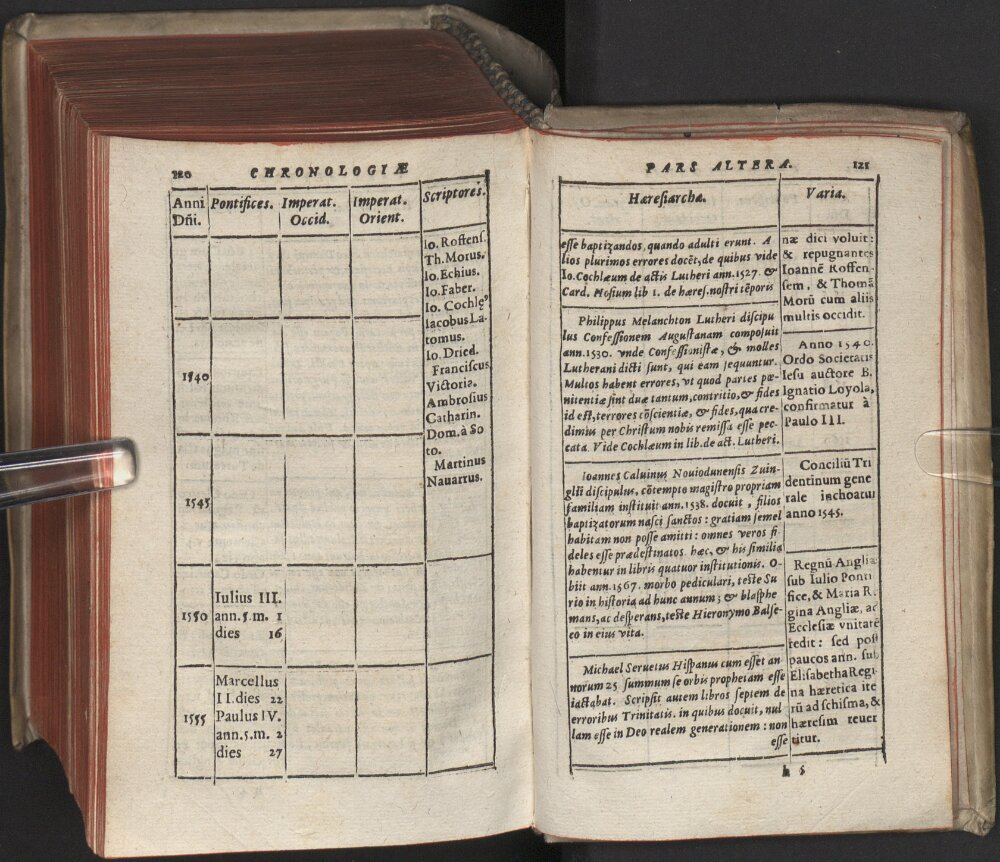 120
CHRONOLOGIÆ
Anni
Dñi.
Pontifices.
Imperat.
Occid.
Imperat.
Orient.
Scriptores.
Io. Roffens.
Th. Morus.
Io. Echius.
Io. Faber.
Io. Cochlę⁹
Iacobus La-
tomus.
Io. Dried.
Franciscus
Victoria.
Ambrosius
Catharin.
Dom. à So
to.
Martinus
Nauarrus.
1540
1545
1550
Iulius III.
ann. 5. m. 1
dies 16
1555
Marcellus
II. dies 22
Paulus IV.
ann. 5. m. 2
dies 27
PARS ALTERA.
121
Hæresiarchæ.
esse baptizandos, quando adulti erunt. A
lios plurimos errores docēt, de quibus vide
Io. Cochlæum de actis Lutheri ann. 1527. &
Card. Hosium lib 1. de hæres. nostri tēporis
Philippus Melanchton Lutheri discipu
lus Confessionem Augustanam composuit
ann. 1530. vnde Confessionistæ, & molles
Lutherani dicti sunt, qui eam sequuntur.
Multos habent errores, vt quod partes pœ-
nitentiæ sint duæ tantum, contritio, & fides
id est, terrores cōscientiæ, & fides, qua cre-
dimus per Christum nobis remissa esse pec-
cata. Vide Cochlæum in lib. de act. Lutheri.
Ioannes Caluinus Nouiodunensis Zuin-
glii discipulus, cōtempto magistro propriam
familiam instituit ann. 1538. docuit, filios
baptizatorum nasci sanctos: gratiam semel
habitam non posse amitti: omnes veros fi
deles esse prædestinatos. hæc, & his similia
habentur in libris quatuor institutionis. O-
biit ann. 1567. morbo pediculari, teste Su
rio in historia ad hunc annum; & blasphe
mans, ac desperans, teste Hieronymo Balse-
co in eius vita.
Michael Seruetus Hispanus cum esset an-
norum 25 summum se orbis prophetam esse
iactabat. Scripsit autem libros septem de
erroribus Trinitatis. in quibus docuit, nul
lam esse in Deo realem generationem: non
esse
Varia.
næ dici voluit:
& repugnantes
Ioannē Roffen-
sem, & Thomã
Morũ cum aliis
multis occidit.
Anno 1540.
Ordo Societatis
Iesu auctore B.
Ignatio Loyola,
confirmatur à
Paulo III.
Conciliũ Tri
dentinum gene
rale inchoatur
anno 1545.
Regnũ Angliæ
sub Iulio Ponti
fice, & Maria R.
gina Angliæ, ac
Ecclesiæ vnitatē
redit: sed post
paucos ann. sub
Elisabetha Regi
na hæretica ite
rũ ad schisma, &
hæresim reuer
titur.
h 5